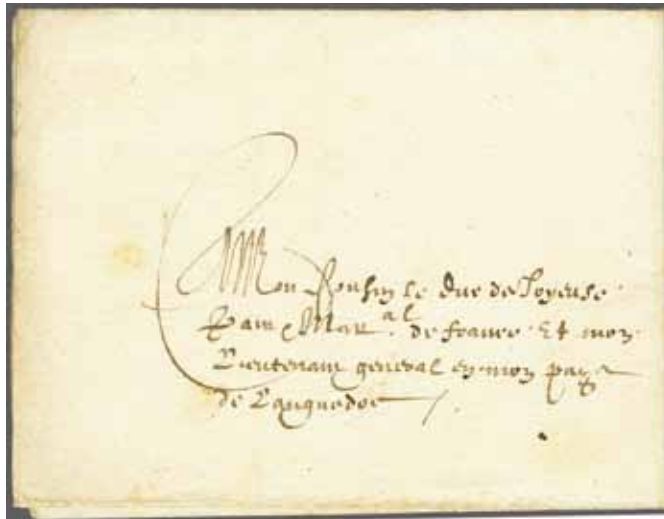 A Mon Cousin le Duc de Joyeuse
Pair Mar.al de france Et mon
Lieutenant general en mon pays
de Languedoc